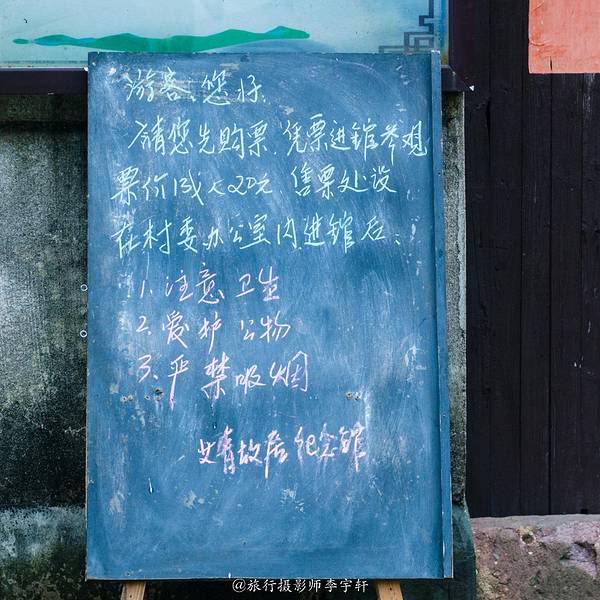 游客、您好.
请您先购票.凭票进馆参观
票价 20元 售票处设
在村委办公室内.进馆后:
1. 注意卫生
2. 爱护公物
3. 严禁吸烟
艾青故居纪念馆
@旅行摄影师李宇轩